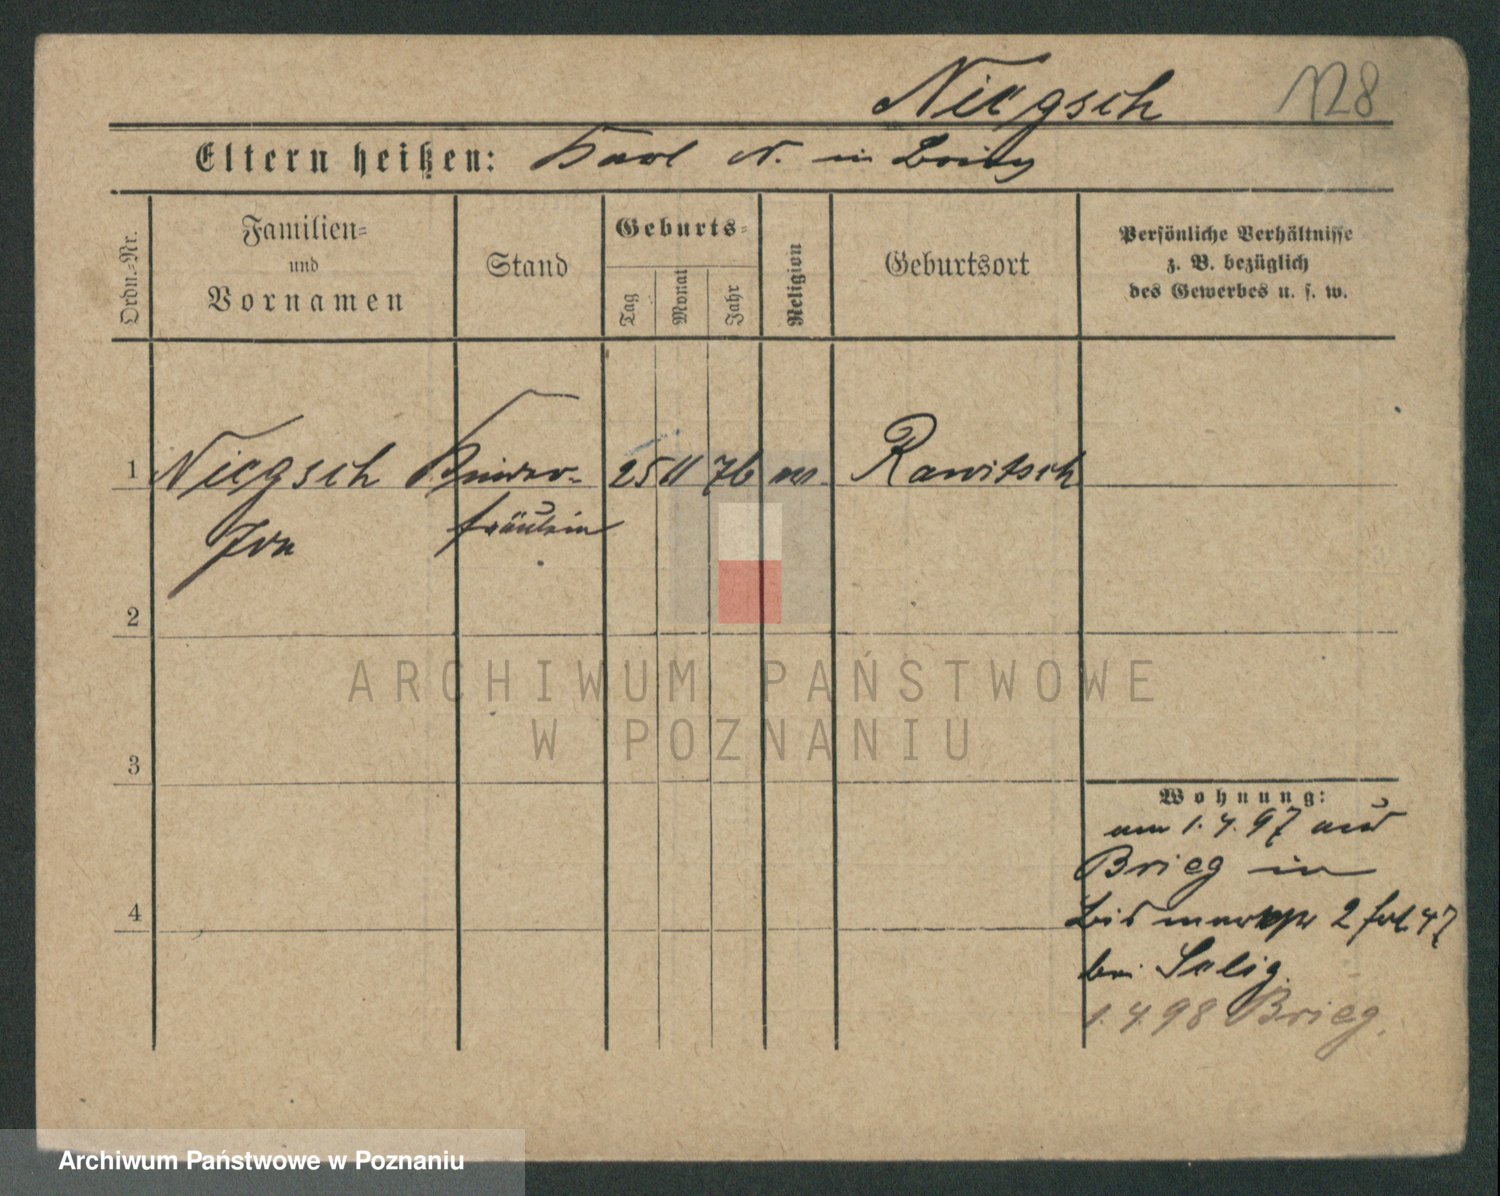 Niegsch 128
Eltern heißen: Karl N. in Brieg
Ordn.-Nr.
Familien-
und
Vornamen
Stand
Geburts-
Tag
Monat
Jahr
Religion
Geburtsort
Persönliche Verhältnisse
z. B. bezüglich
des Gewerbes u. s. w.
1 Niegsch Kinder- 25 11 76 Rawitsch
fräulein
2
3
4
Wohnung:
am 1.4.97 aus
Brieg in
Bismarckstr 2 fol 47
bei Selig.
1.4.98 Brieg.
ARCHIWUM PAŃSTWOWE
W POZNANIU
Archiwum Państwowe w Poznaniu